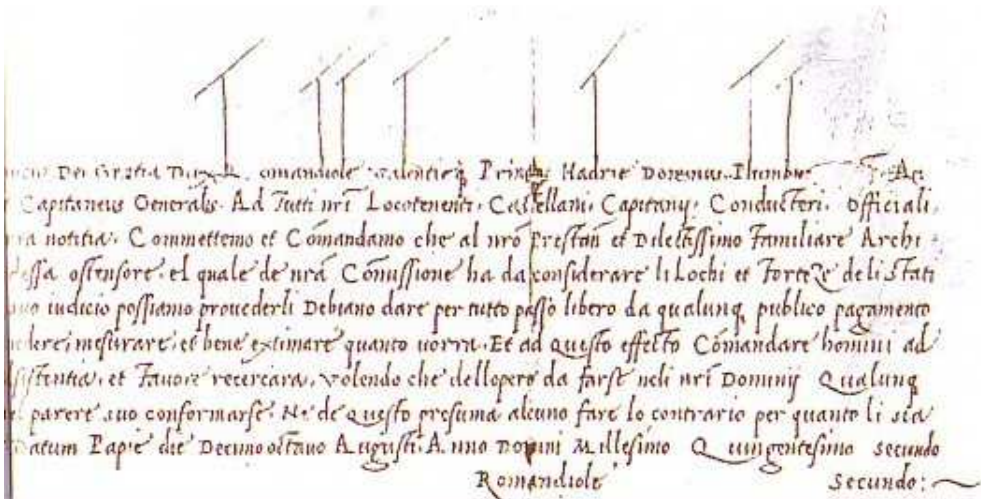 Dei Gratia Dux Romandiole Valentieq Princeps Hadrie Dominus Plumbini Ac
Capitaneus Generalis. Ad Tutti nri Locotenenti, Castellani, Capitanij, Conducteri, Officiali,
notitia. Commettemo et Comandamo che al nro Prestan et Dilectissimo Familiare Archi
essa ostensore, el quale de nra Comissione ha da considerare li Lochi et Forteze de li Stati
suo iudicio possiamo provederli Debiano dare per tutto passo libero da qualunq publico pagamento
vedere, mesurare, et bene extimare quanto vorra. Et ad Questo effecto Comandare homini ad
sistentia, et Favore recercara, volendo che dellopere da farse neli nri Dominij Qualunq
parere suo conformarse. Ne de Questo presuma alcuno fare lo contrario per quanto li sia
Datum Papie die Decimooctavo Augusti. Anno Domini Millesimo Quingentesimo secundo
Romandiole Secundo: